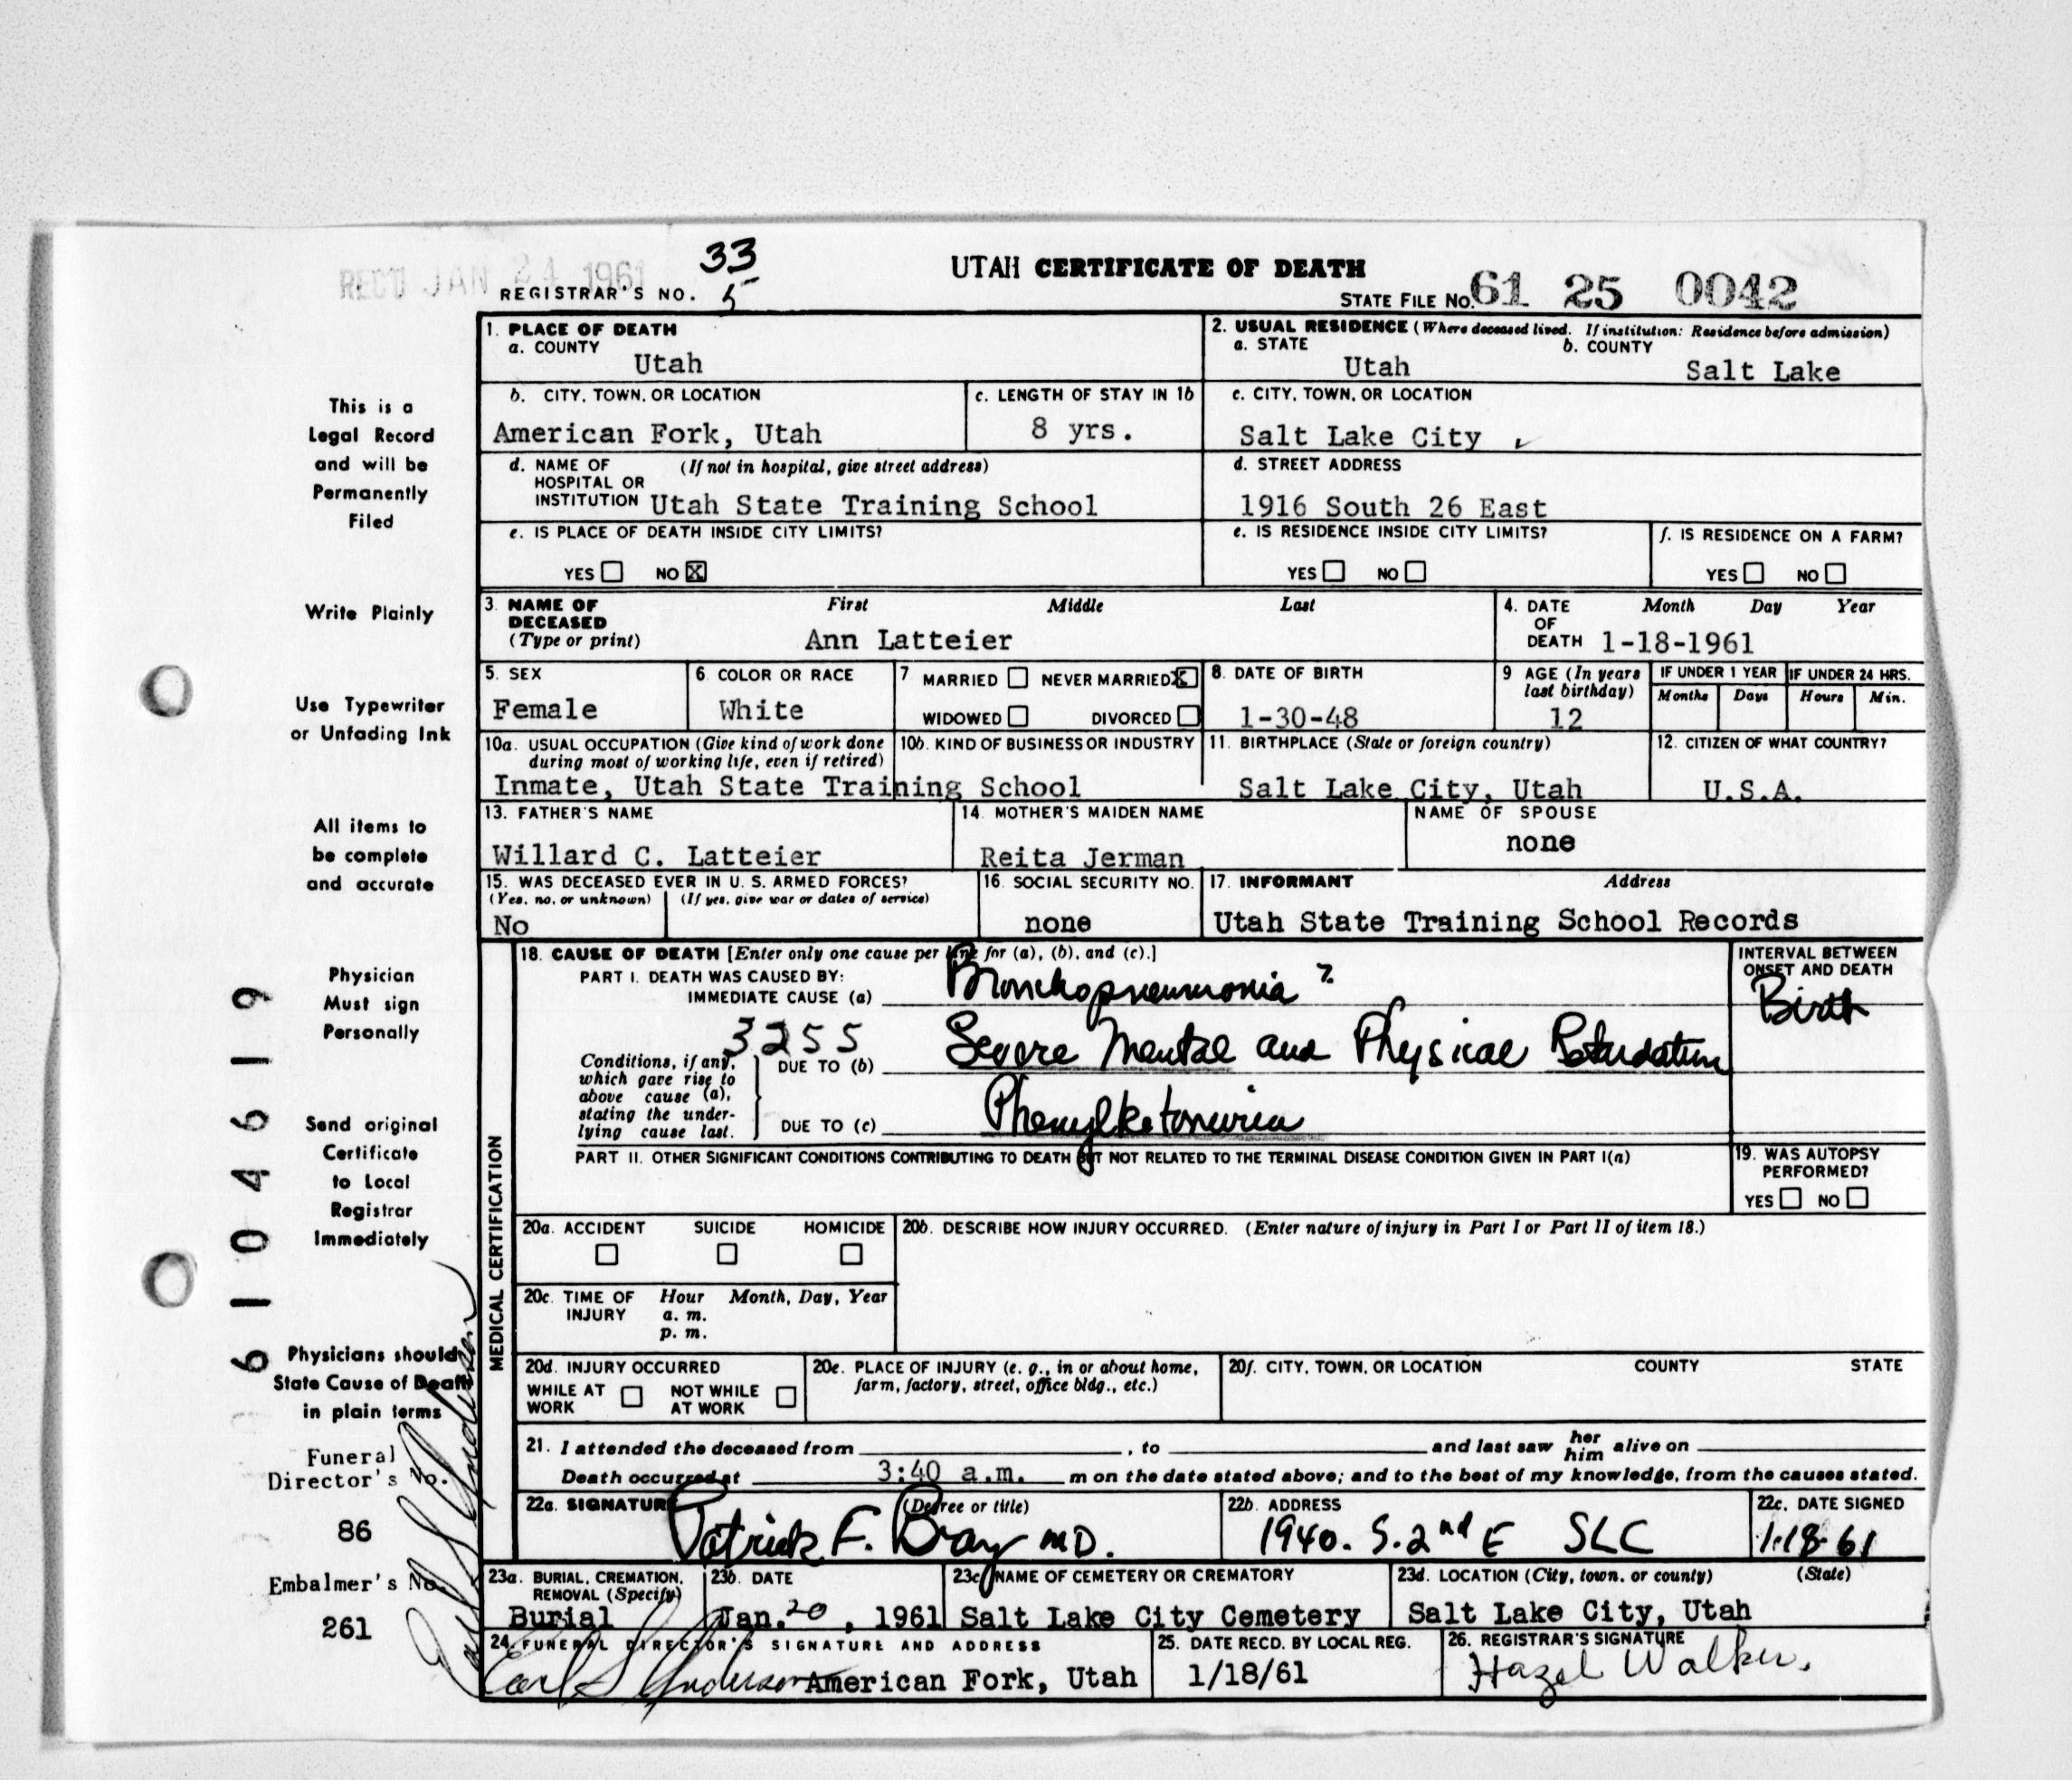 REC'D JAN 24 1961
33
REGISTRAR'S NO. 5
UTAH CERTIFICATE OF DEATH
STATE FILE NO. 61 25 0042
This is a
Legal Record
and will be
Permanently
Filed
Write Plainly
Use Typewriter
or Unfading Ink
All items to
be complete
and accurate
Physician
Must sign
Personally
Send original
Certificate
to Local
Registrar
Immediately
Physicians should
State Cause of Death
in plain terms
Funeral
Director's No.
86
Embalmer's No.
261
61 10 4 6 1 9
Earl S Anderson
1. PLACE OF DEATH
a. COUNTY
Utah
2. USUAL RESIDENCE (Where deceased lived. If institution: Residence before admission)
a. STATE b. COUNTY
Utah Salt Lake
b. CITY, TOWN, OR LOCATION
American Fork, Utah
c. LENGTH OF STAY IN 1b
8 yrs.
c. CITY, TOWN, OR LOCATION
Salt Lake City
d. NAME OF (If not in hospital, give street address)
HOSPITAL OR
INSTITUTION Utah State Training School
d. STREET ADDRESS
1916 South 26 East
e. IS PLACE OF DEATH INSIDE CITY LIMITS?
YES NO X
e. IS RESIDENCE INSIDE CITY LIMITS?
YES NO
f. IS RESIDENCE ON A FARM?
YES NO
3. NAME OF First Middle Last
DECEASED
(Type or print) Ann Latteier
4. DATE Month Day Year
OF
DEATH 1-18-1961
5. SEX
Female
6. COLOR OR RACE
White
7 MARRIED NEVER MARRIED X
WIDOWED DIVORCED
8. DATE OF BIRTH
1-30-48
9 AGE (In years
last birthday)
12
IF UNDER 1 YEAR IF UNDER 24 HRS.
Months Days Hours Min.
10a. USUAL OCCUPATION (Give kind of work done
during most of working life, even if retired)
10b. KIND OF BUSINESS OR INDUSTRY
Inmate, Utah State Training School
11. BIRTHPLACE (State or foreign country)
Salt Lake City, Utah
12. CITIZEN OF WHAT COUNTRY?
U.S.A.
13. FATHER'S NAME
Willard C. Latteier
14. MOTHER'S MAIDEN NAME
Reita Jerman
NAME OF SPOUSE
none
15. WAS DECEASED EVER IN U. S. ARMED FORCES?
(Yes, no, or unknown) (If yes, give war or dates of service)
No
16. SOCIAL SECURITY NO.
none
17. INFORMANT Address
Utah State Training School Records
MEDICAL CERTIFICATION
18. CAUSE OF DEATH [Enter only one cause per line for (a), (b), and (c).]
PART I. DEATH WAS CAUSED BY:
IMMEDIATE CAUSE (a) Bronchopneumonia ?
INTERVAL BETWEEN
ONSET AND DEATH
Birth
3255
Conditions, if any,
which gave rise to
above cause (a),
stating the under-
lying cause last.
DUE TO (b) Severe Mental and Physical Retardation
DUE TO (c) Phenylketonuria
PART II. OTHER SIGNIFICANT CONDITIONS CONTRIBUTING TO DEATH BUT NOT RELATED TO THE TERMINAL DISEASE CONDITION GIVEN IN PART I(a)
19. WAS AUTOPSY
PERFORMED?
YES NO
20a. ACCIDENT SUICIDE HOMICIDE
20b. DESCRIBE HOW INJURY OCCURRED. (Enter nature of injury in Part I or Part II of item 18.)
20c. TIME OF Hour Month, Day, Year
INJURY a. m.
p. m.
20d. INJURY OCCURRED
WHILE AT NOT WHILE
WORK AT WORK
20e. PLACE OF INJURY (e. g., in or about home,
farm, factory, street, office bldg., etc.)
20f. CITY, TOWN, OR LOCATION COUNTY STATE
21. I attended the deceased from , to and last saw her him alive on
Death occurred at 3:40 a.m. m on the date stated above; and to the best of my knowledge, from the causes stated.
22a. SIGNATURE (Degree or title)
Patrick F. Bray MD.
22b. ADDRESS
1940. S. 2nd E SLC
22c. DATE SIGNED
1-18-61
23a. BURIAL, CREMATION,
REMOVAL (Specify)
Burial
23b. DATE
Jan. 20, 1961
23c. NAME OF CEMETERY OR CREMATORY
Salt Lake City Cemetery
23d. LOCATION (City, town, or county) (State)
Salt Lake City, Utah
24. FUNERAL DIRECTOR'S SIGNATURE AND ADDRESS
Earl S Anderson American Fork, Utah
25. DATE RECD. BY LOCAL REG.
1/18/61
26. REGISTRAR'S SIGNATURE
Hazel Walker.